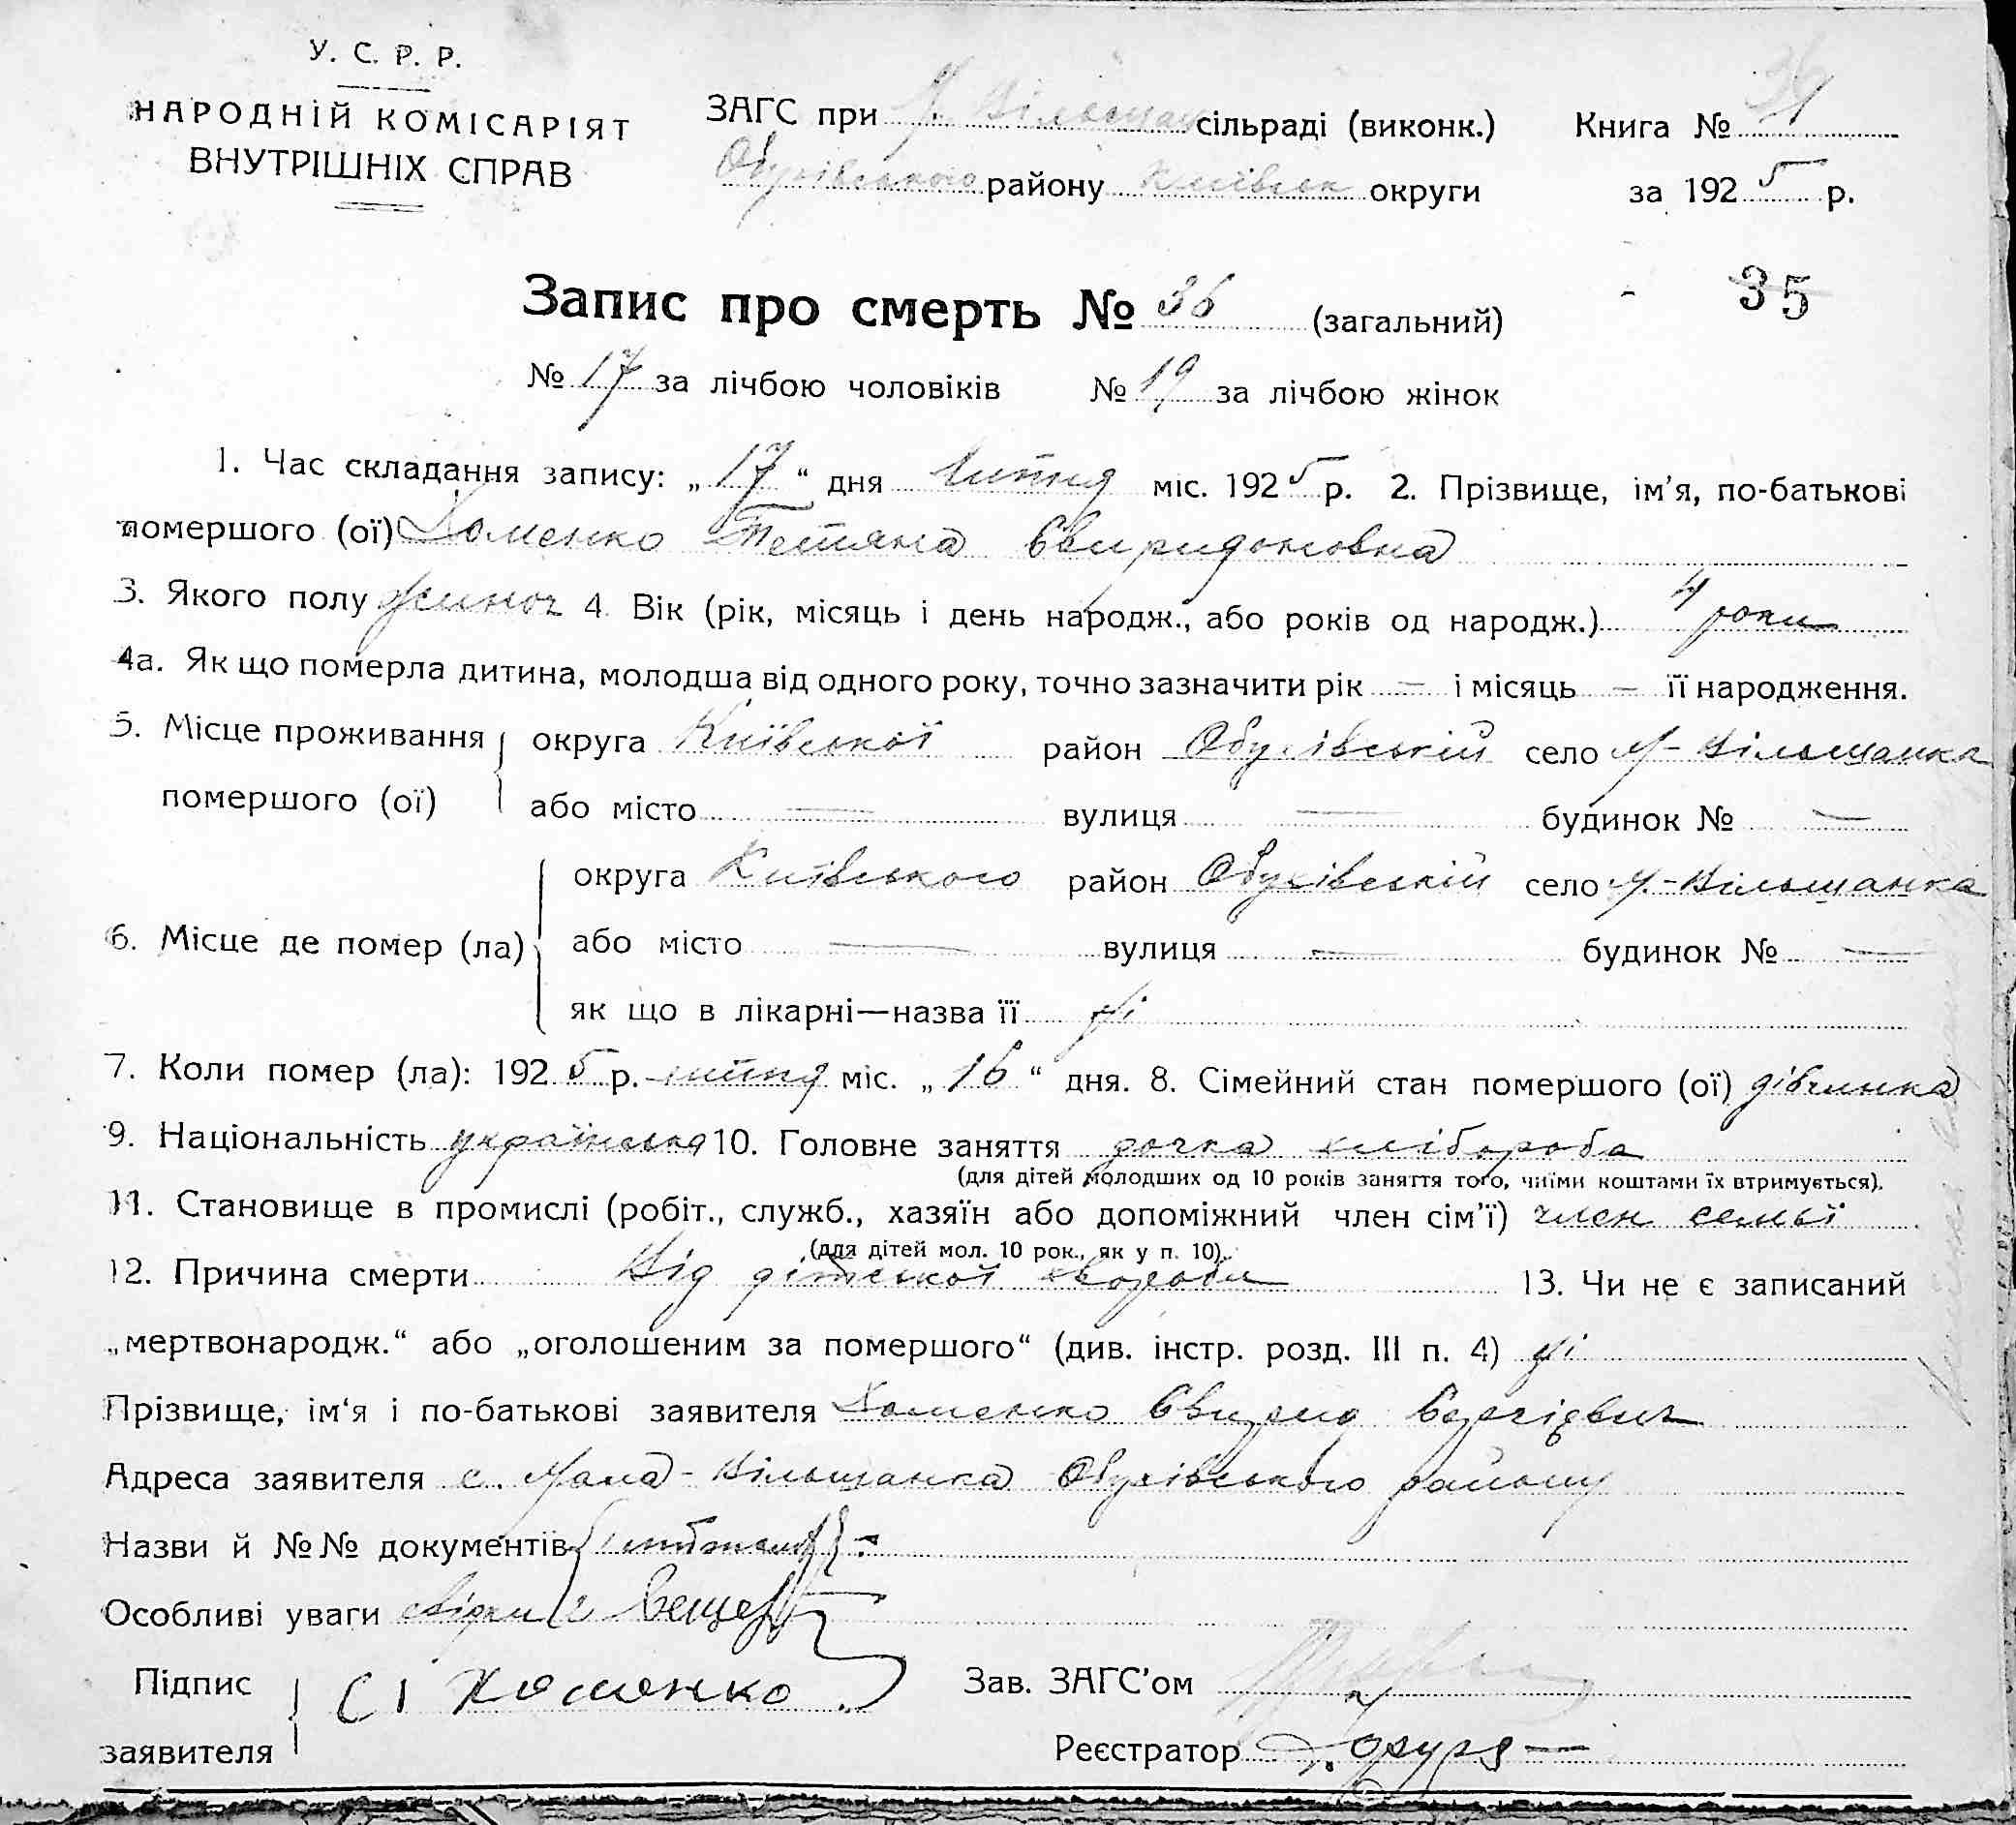 У. С. Р. Р.
НАРОДНІЙ КОМІСАРІЯТ
ВНУТРІШНІХ СПРАВ
ЗАГС при М. Вільшан сільраді (виконк.)
Обухівського району Київськ округи
Книга №
за 1925 р.
35
Запис про смерть № 36 (загальний)
№ 17 за лічбою чоловіків № 19 за лічбою жінок
1. Час складання запису: „17“ дня липня міс. 1925 р. 2. Прізвище, ім’я, по-батькові
помершого (ої) Хоменко Тетяна Свиридоновна
3. Якого полу жиноч 4. Вік (рік, місяць і день народж., або років од народж.) 4 роки
4а. Як що померла дитина, молодша від одного року, точно зазначити рік — і місяць — її народження.
5. Місце проживання помершого (ої) округа Київської район Обухівській село М-Вільшанка
або місто — вулиця — будинок № —
6. Місце де помер (ла) округа Київського район Обухівській село М.-Вільшанка
або місто — вулиця — будинок № —
як що в лікарні—назва її ні
7. Коли помер (ла): 1925 р. липня міс. „16“ дня. 8. Сімейний стан помершого (ої) дівчинка
9. Національність українська 10. Головне заняття дочка хлібороба
(для дітей молодших од 10 років заняття того, чиїми коштами їх втримується).
11. Становище в промислі (робіт., служб., хазяїн або допоміжний член сім’ї) член семьї
(для дітей мол. 10 рок., як у п. 10).
12. Причина смерти Від дітської хвороби 13. Чи не є записаний
„мертвонародж.“ або „оголошеним за помершого“ (див. інстр. розд. III п. 4) ні
Прізвище, ім‘я і по-батькові заявителя Хоменко Свирид
Адреса заявителя с. Мала-Вільшанка Обухівського району
Назви й №№ документів
Особливі уваги
Підпис заявителя Хоменко
Зав. ЗАГС’ом
Реєстратор